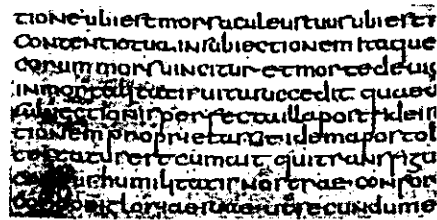 tione ubi est mors aculeus tuus ubi est
contentio tua. in subiectionem itaque
eorum mors uincitur et morte deuic
succedit quae ad
subiectionis perfecta illa post
tionem et idem apostol
testatur est cum ait qui transfigu
humilitatis nostrae confor
gloriae suae ut secundum o